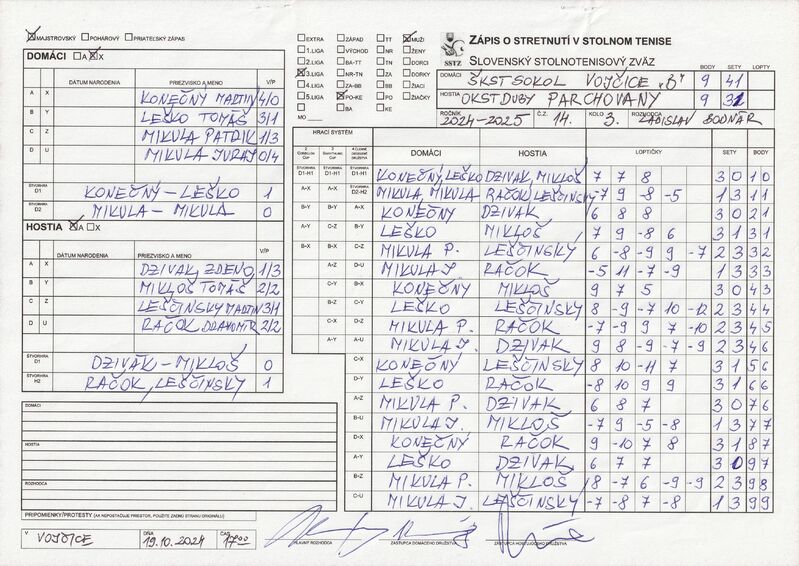 MAJSTROVSKÝ POHÁROVÝ PRIATEĽSKÝ ZÁPAS
DOMÁCI A X
DÁTUM NARODENIA PRIEZVISKO A MENO V/P
A X KONEČNÝ MARTIN 4/0
B Y LEŠKO TOMÁŠ 3/1
C Z MIKULA PATRIK 1/3
D U MIKULA JURAJ 0/4
ŠTVORHRA D1 KONEČNÝ – LEŠKO 1
ŠTVORHRA D2 MIKULA – MIKULA 0
HOSTIA A X
DÁTUM NARODENIA PRIEZVISKO A MENO V/P
A X DZIVAK ZDENO 1/3
B Y MIKLOŠ TOMÁŠ 2/2
C Z LEŠČINSKY MARTIN 3/1
D U RAČOK DRAHOMÍR 2/2
ŠTVORHRA H1 DZIVAK – MIKLOŠ 0
ŠTVORHRA H2 RAČOK, LEŠČINSKY 1
DOMÁCI
HOSTIA
ROZHODCA
PRIPOMIENKY/PROTESTY (AK NEPOSTAČUJE PRIESTOR, POUŽITE ZADNÚ STRANU ORIGINÁLU)
V VOJČICE DŇA 19.10.2024 ČAS 17:00
EXTRA ZÁPAD TT MUŽI
1.LIGA VÝCHOD NR ŽENY
2.LIGA BA-TT TN DORCI
3.LIGA NR-TN ZA DORKY
4.LIGA ZA-BB BB ŽIACI
5.LIGA PO-KE PO ŽIAČKY
BA KE
MO
SSTZ
ZÁPIS O STRETNUTÍ V STOLNOM TENISE
SLOVENSKÝ STOLNOTENISOVÝ ZVÄZ
BODY SETY LOPTY
DOMÁCI ŠKST SOKOL VOJČICE „B" 9 41
HOSTIA OKST DUBY PARCHOVANY 9 32
ROČNÍK 2024-2025 Č.Z. 14. KOLO 3. ROZHODCA LADISLAV BODNÁR
HRACÍ SYSTÉM DOMÁCI HOSTIA LOPTIČKY SETY BODY
ŠTVORHRA D1-H1 ŠTVORHRA D1-H1 ŠTVORHRA D1-H1 KONEČNÝ, LEŠKO DZIVAK, MIKLOŠ 7 7 8 3 0 1 0
A-X A-X ŠTVORHRA D2-H2 MIKULA MIKULA RAČOK, LEŠČINSKY -7 9 -8 -5 1 3 1 1
B-Y B-Y A-X KONEČNÝ DZIVAK 6 8 8 3 0 2 1
A-Y C-Z B-Y LEŠKO MIKLOŠ 7 9 -8 6 3 1 3 1
B-X B-X C-Z MIKULA P. LEŠČINSKY 6 -8 -9 9 -7 2 3 3 2
A-Z D-U MIKULA J. RAČOK -5 11 -7 -9 1 3 3 3
C-Y B-X KONEČNÝ MIKLOŠ 9 7 5 3 0 4 3
B-Z C-Y LEŠKO LEŠČINSKY 8 -9 -7 10 -12 2 3 4 4
C-X D-Z MIKULA P. RAČOK -7 -9 9 7 -10 2 3 4 5
A-Y A-U MIKULA J. DZIVAK 9 8 -9 -7 -9 2 3 4 6
C-X KONEČNÝ LEŠČINSKY 8 10 -11 7 3 1 5 6
D-Y LEŠKO RAČOK -8 10 9 9 3 1 6 6
A-Z MIKULA P. DZIVAK 6 8 7 3 0 7 6
B-U MIKULA J. MIKLOŠ -7 9 -5 -8 1 3 7 7
D-X KONEČNÝ RAČOK 9 -10 7 8 3 1 8 7
A-Y LEŠKO DZIVAK 6 7 7 3 0 9 7
B-Z MIKULA P. MIKLOŠ 8 -7 6 -9 -9 2 3 9 8
C-U MIKULA J. LEŠČINSKY -7 -8 7 -8 1 3 9 9
HLAVNÝ ROZHODCA ZÁSTUPCA DOMÁCEHO DRUŽSTVA ZÁSTUPCA HOSŤUJÚCEHO DRUŽSTVA